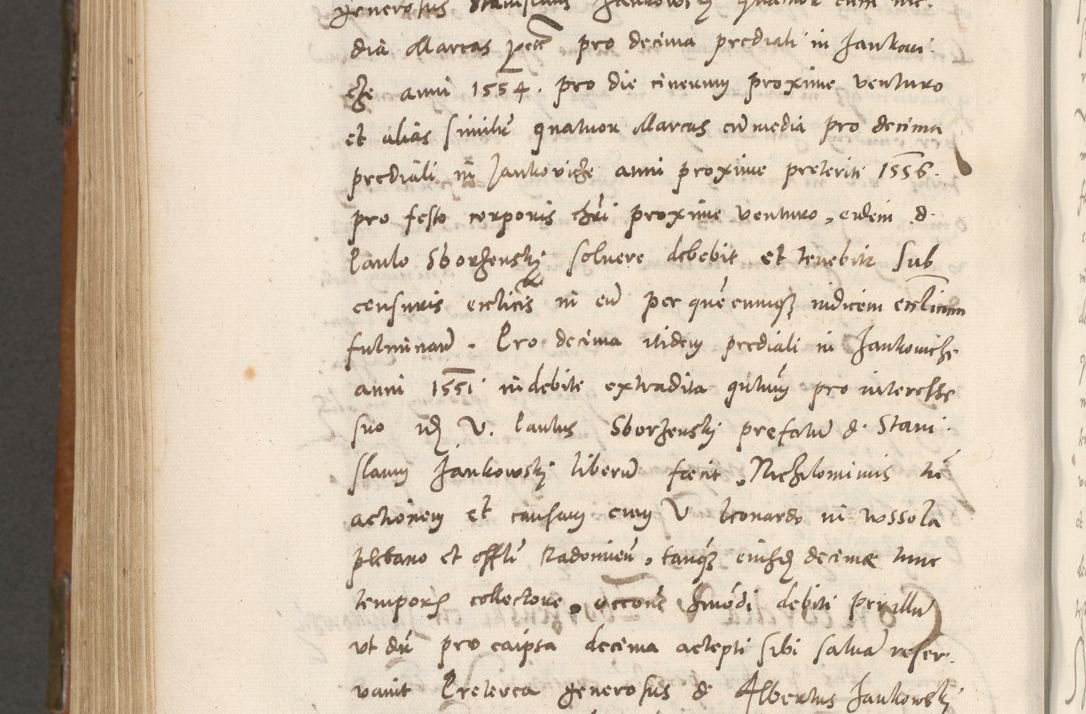 generosus Stanislaus Jankowskj quatuor cum me-
dia Marcas pecū pro decima prediali in Jankowi-
cze anni 1554. pro die cinerum proxime venturo
et alias similr̄ quatuor Marcas cū media pro decima
prediali in Jankovicze anni proxime preteriti 1556.
pro festo corporis chr̄i proxime venturo, eidem d.
Paulo Sborzenskj soluere debebit et tenebitr sub
censuris ecclīcis in eū per quēcumqz iudicem ecclīcum
fulminan̄. Pro decima itidem prediali in Jankowicze
anni 1551 indebite extradita q̄tum pro interesse
suo idē V. Paulus Sborzenskj prefatū d. Stani-
slaum Jankowskj liberū fecit, Nichilominus tn̄
actionem et causam cum V Leonardo in Wssola
plebano et offlī Radomien̄, tanqz eiusdē decimæ tunc
temporis collectore, occōne hm̄odi debiti per illū
vt dr̄ pro ea ipsa decima accepti sibi saluā reser-
vauit Preterea generosus d Albertus Jankowskj